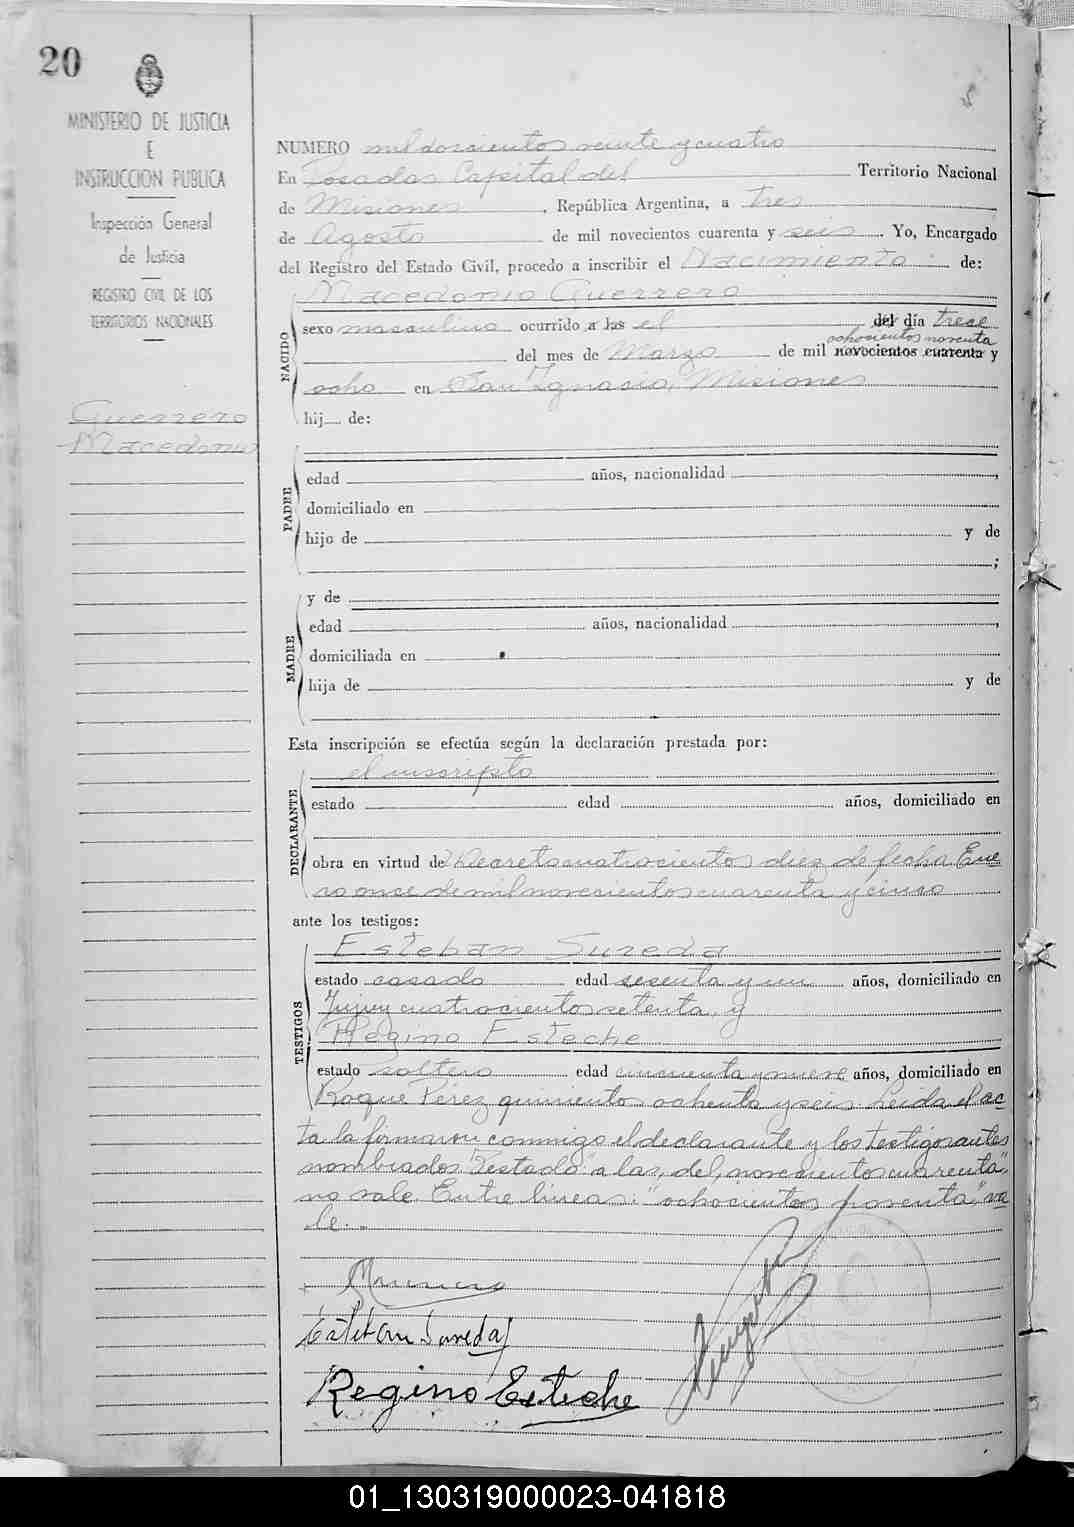 20
MINISTERIO DE JUSTICIA
E
INSTRUCCION PUBLICA
Inspección General
de Justicia
REGISTRO CIVIL DE LOS
TERRITORIOS NACIONALES
Guerrero
Macedonio
NUMERO mil doscientos veinte y cuatro
En Posadas Capital del Territorio Nacional
de Misiones, República Argentina, a tres
de Agosto de mil novecientos cuarenta y seis. Yo, Encargado
del Registro del Estado Civil, procedo a inscribir el Nacimiento de:
NACIDO
Macedonio Guerrero
sexo masculino ocurrido a las el del día trece
ochocientos noventa
del mes de Marzo de mil novecientos cuarenta y
ocho en San Ignacio, Misiones
hij de:
PADRE
edad años, nacionalidad ,
domiciliado en
hijo de y de
;
MADRE
y de
edad años, nacionalidad ,
domiciliada en
hija de y de
Esta inscripción se efectúa según la declaración prestada por:
DECLARANTE
el inscripto
estado edad años, domiciliado en
obra en virtud de Decreto cuatrocientos diez de fecha Ene
ro once de mil novecientos cuarenta y cinco
ante los testigos:
TESTIGOS
Esteban Sureda
estado casado edad sesenta y un años, domiciliado en
Jujuy cuatrocientos setenta, y
Regino Esteche
estado soltero edad cincuenta y nueve años, domiciliado en
Roque Perez quinientos ochenta y seis. Leida el ac
ta la firmaron conmigo el declarante y los testigos antes
nombrados. Testado "a las, del, novecientos cuarenta",
no vale. Entre lineas: "ochocientos noventa", va
le.
Esteban Sureda
Regino Esteche
01_130319000023-041818